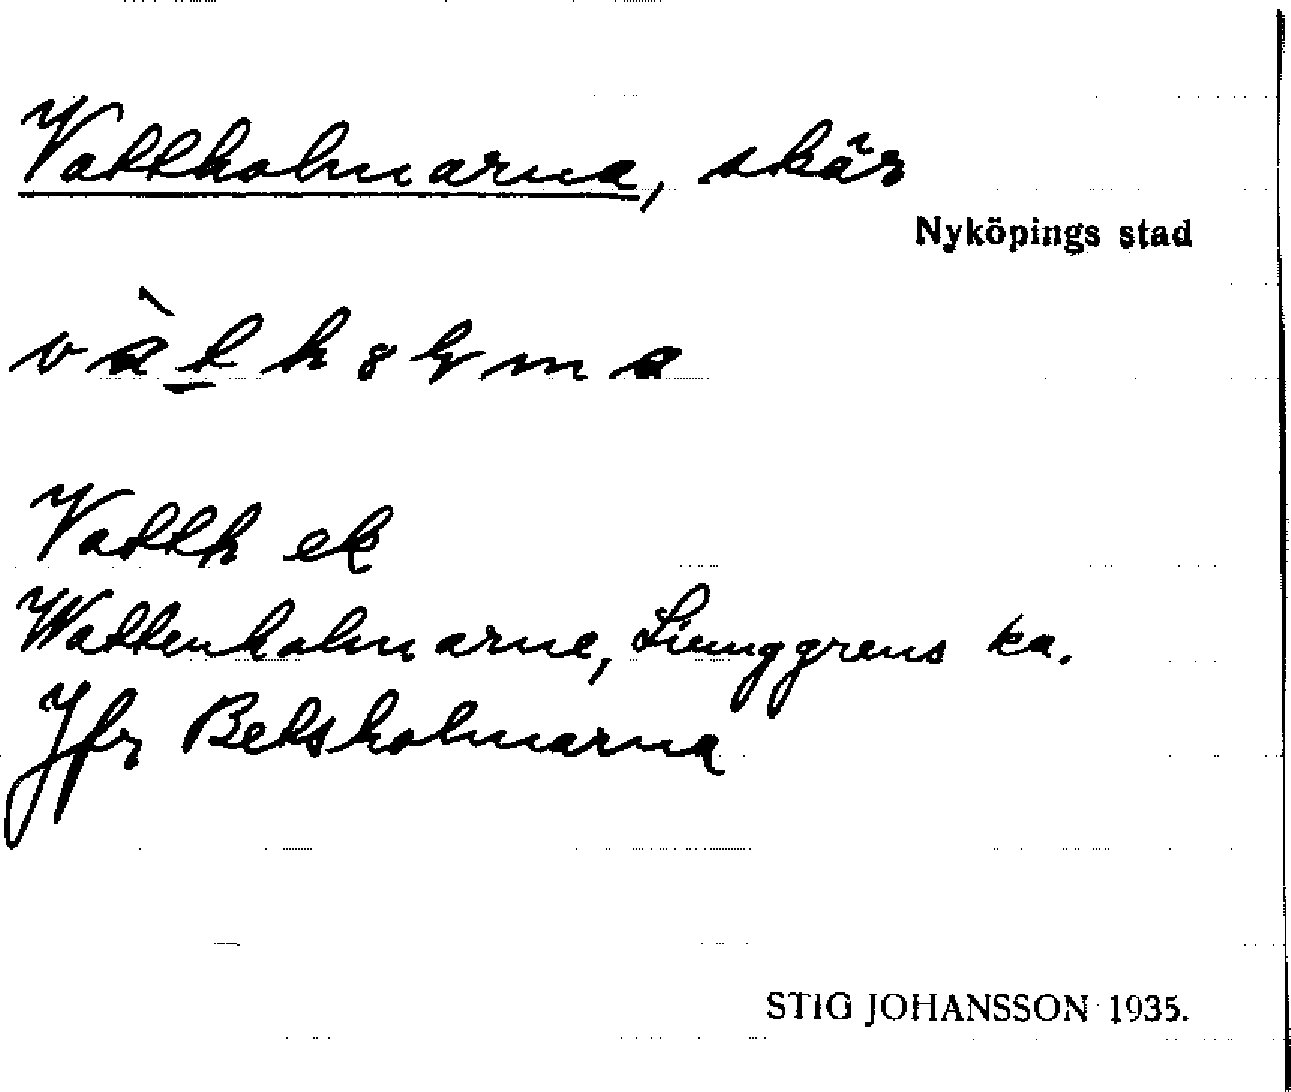 Vattholmarna, skär
Nyköpings stad
Vatth ek
Wattenholmarne, Ljunggrens ka.
Jfr Betsholmarna
STIG JOHANSSON 1935.